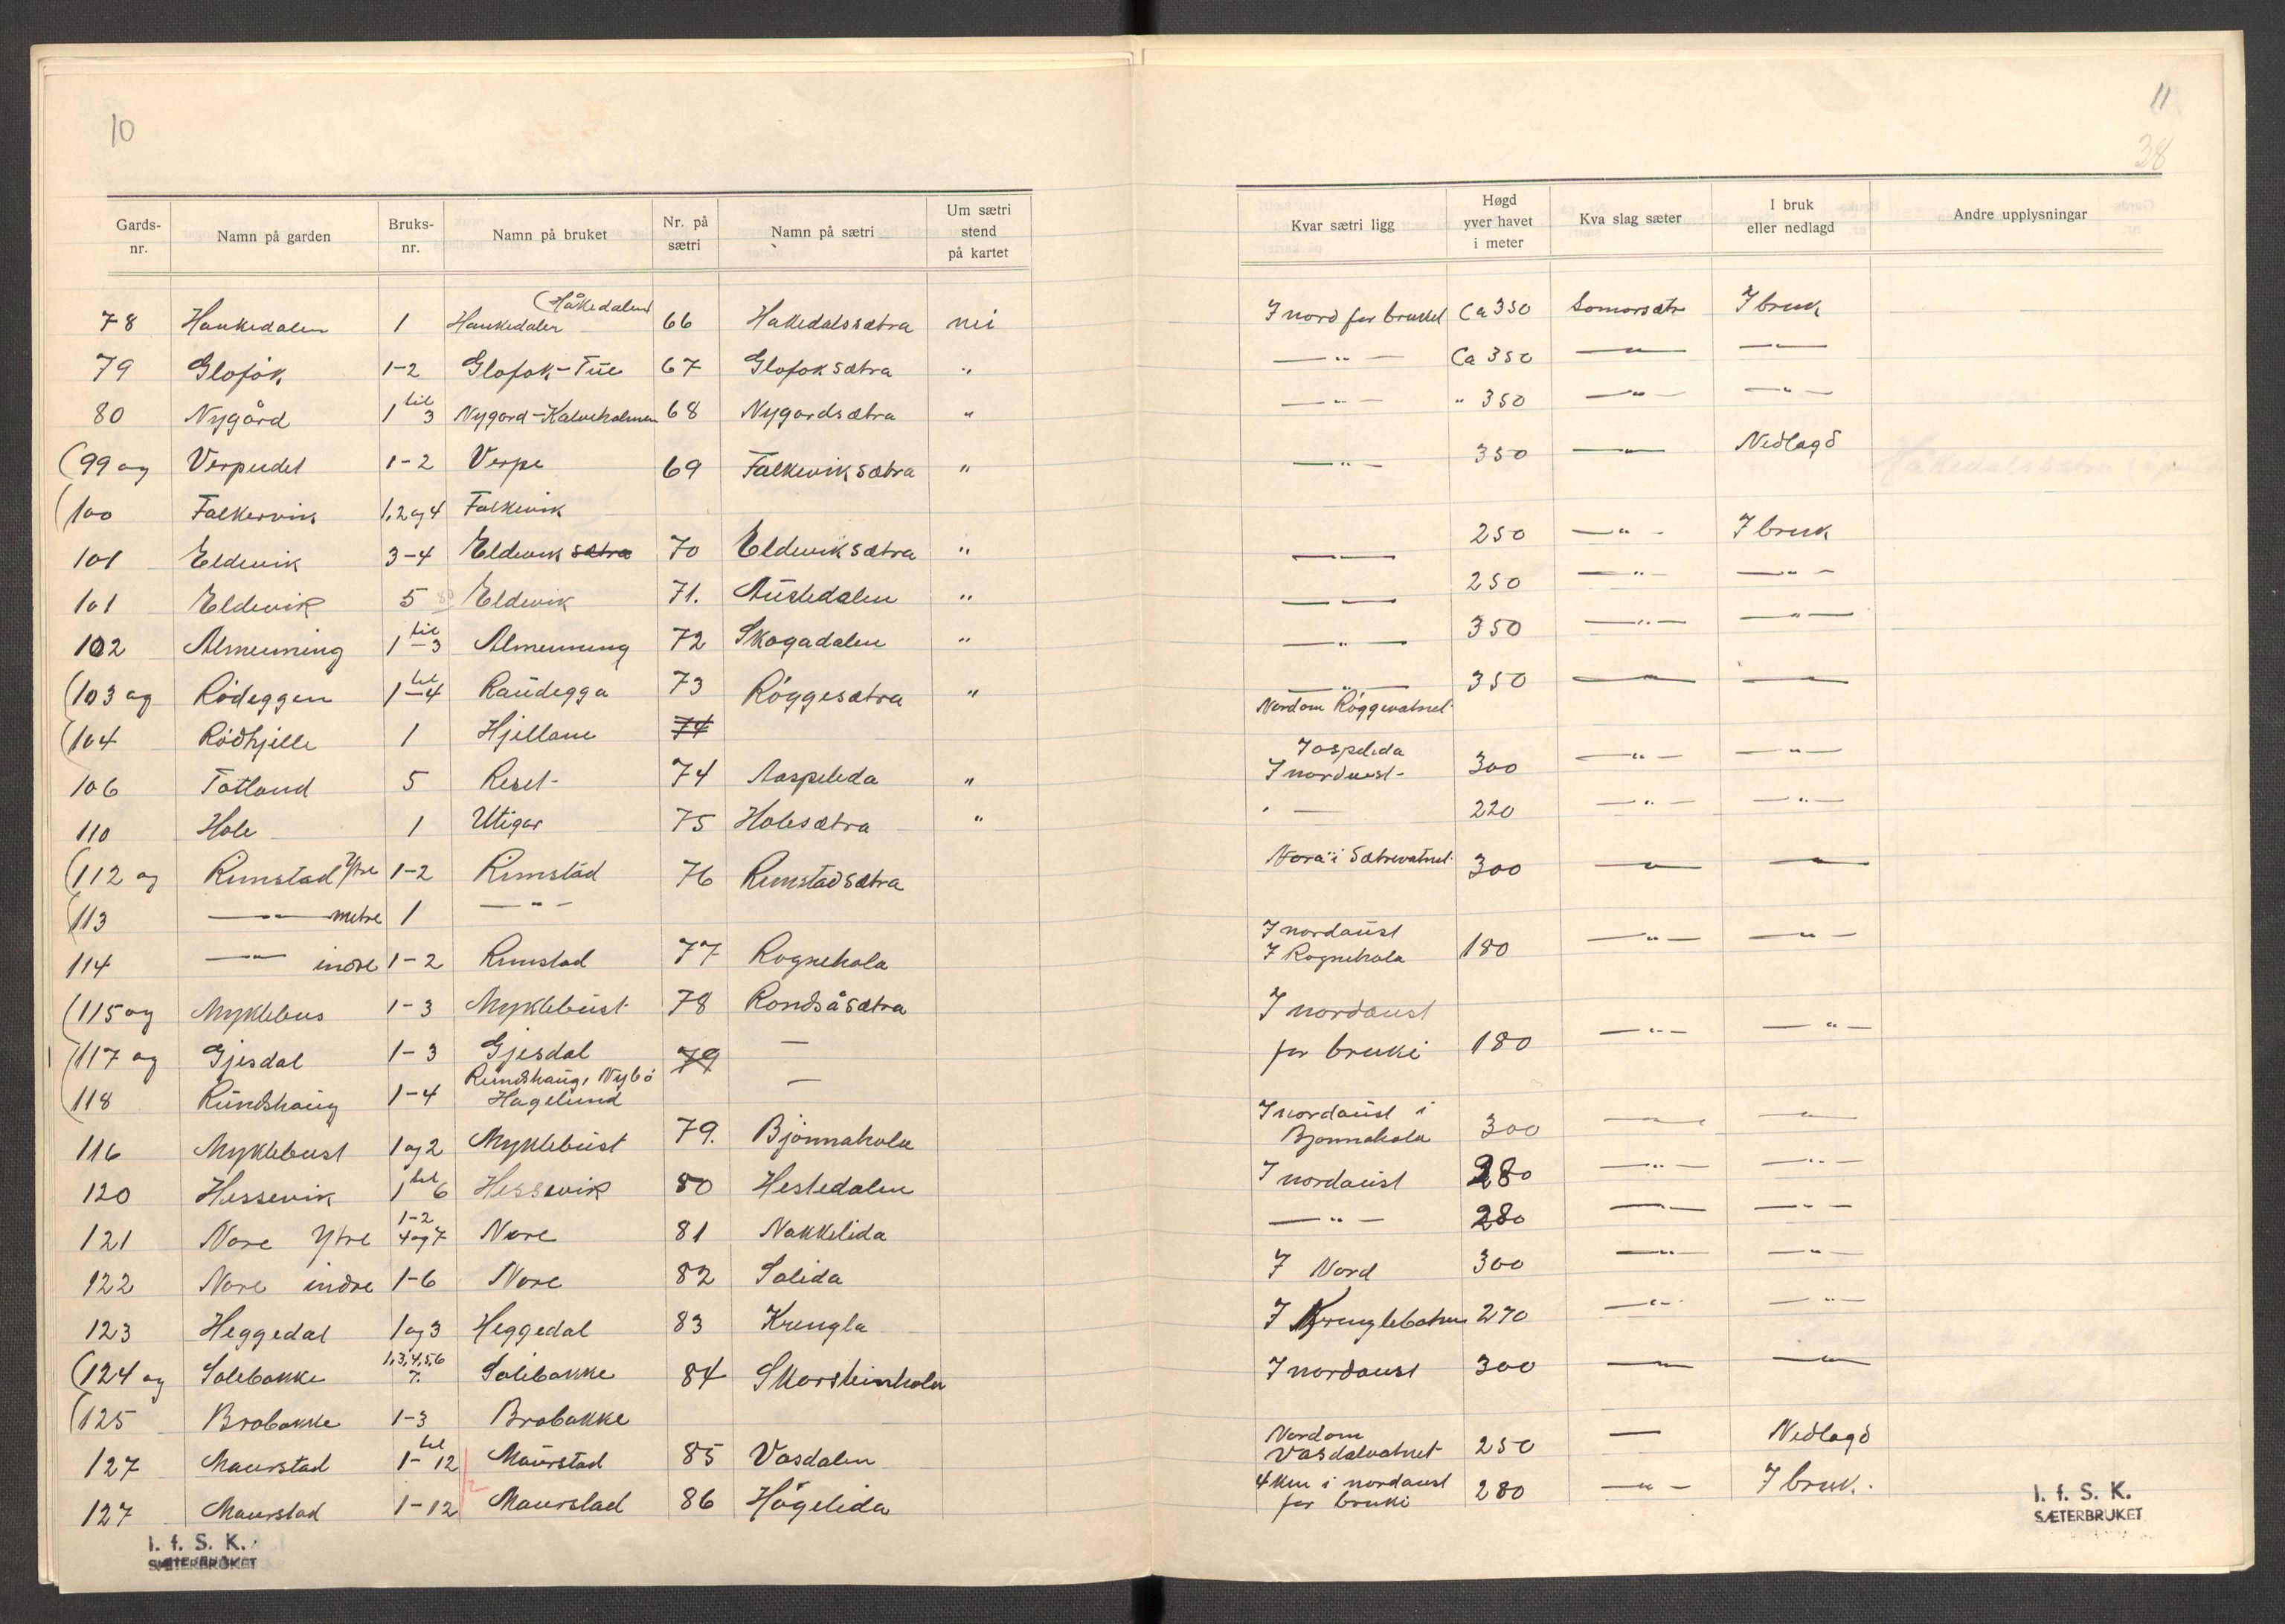 10
Gards-nr. Namn på garden Bruks-nr. Namn på bruket Nr. på sætri Namn på sætri Um sætri stend på kartet
(Håkedalen)
78 Haukedalen 1 Haukedalen 66 Hakedalssætra nei
79 Glofok 1-2 Glofok-Tue 67 Glofoksætra "
80 Nygård 1 til 3 Nygord-Kalveholmen 68 Nygordsætra "
(99 og Verpeidet 1-2 Verpe 69 Falkeviksætra "
(100 Falkervik 1,2 og 4 Falkevik
101 Eldevik 3-4 Eldevik sætra 70 Eldeviksætra "
101 Eldevik 5 Eldevik 71. Austedalen "
102 Almenning 1 til 3 Almenning 72 Skogadalen "
(103 og Rödeggen 1 til 4 Raudegga 73 Röggesætra "
(104 Rödhjelle 1 Hjellane 74
106 Totland 5 Reset 74 Aaspelida "
110 Hole 1 Utigar 75 Holesætra "
(112 og Rimstad Ytre 1-2 Rimstad 76 Rimstadsætra
(113 —"— metre 1 —"—
114 —"— indre 1-2 Rimstad 77 Rognehola
(115 og Myklebus 1-3 Myklebust 78 Rondsåsætra
(117 og Gjesdal 1-3 Gjesdal 79 —
Rundshaug, Nybö
(118 Rundshaug 1-4 Hagelund —
116 Myklebust 1 og 2 Myklebust 79. Bjönnahola
120 Hessevik 1 til 6 Hessevik 80 Hestedalen
1-2
121 Nore Ytre 4 og 7 Nore 81 Nakkelida
122 Nore indre 1-6 Nore 82 Solida
123 Heggedal 1 og 3 Heggedal 83 Krengla
1,3,4,5,6
(124 og Solebakke 7. Solebakke 84 Skorsteinholen
(125 Brobakke 1-3 Brobakke
127 Maurstad 1 til 12 Maurstad 85 Vasdalen
127 Maurstad 1-12 Maurstad 86 Högelida
I. f. S. K.
SÆTERBRUKET
11
38
Kvar sætri ligg Høgd yver havet i meter Kva slag sæter I bruk eller nedlagd Andre upplysningar
I nord for bruket Ca 350 Somorsætr I bruk
—"— Ca 350 —"— —"—
—"— " 350 —"— —"—
—"— 350 —"— Nedlagd
—"— 250 —"— I bruk
—"— 250 —"— —"—
—"— 350 —"— —"—
—"— 350 —"— —"—
Nordom Röggevatnet
I ospelida
I nordvest 300 —"— —"—
" — 220 —"— —"—
Nora i Sætrevatnet 300 —"— —"—
I nordaust
I Rognehola 180 —"— —"—
I nordaust
for bruki 180 —"— —"—
I nordaust i
Bjonnahola 300 —"— —"—
I nordaust 280 —"— —"—
—"— 280 —"— —"—
I Nord 300 —"— —"—
I Krenglebotnen 270 —"— —"—
I nordaust 300 —"— —"—
Nordom
Vasdalvatnet 250 — Nedlagd
4 km i nordaust
for bruki 280 —"— I bruk.
I. f. S. K.
SÆTERBRUKET